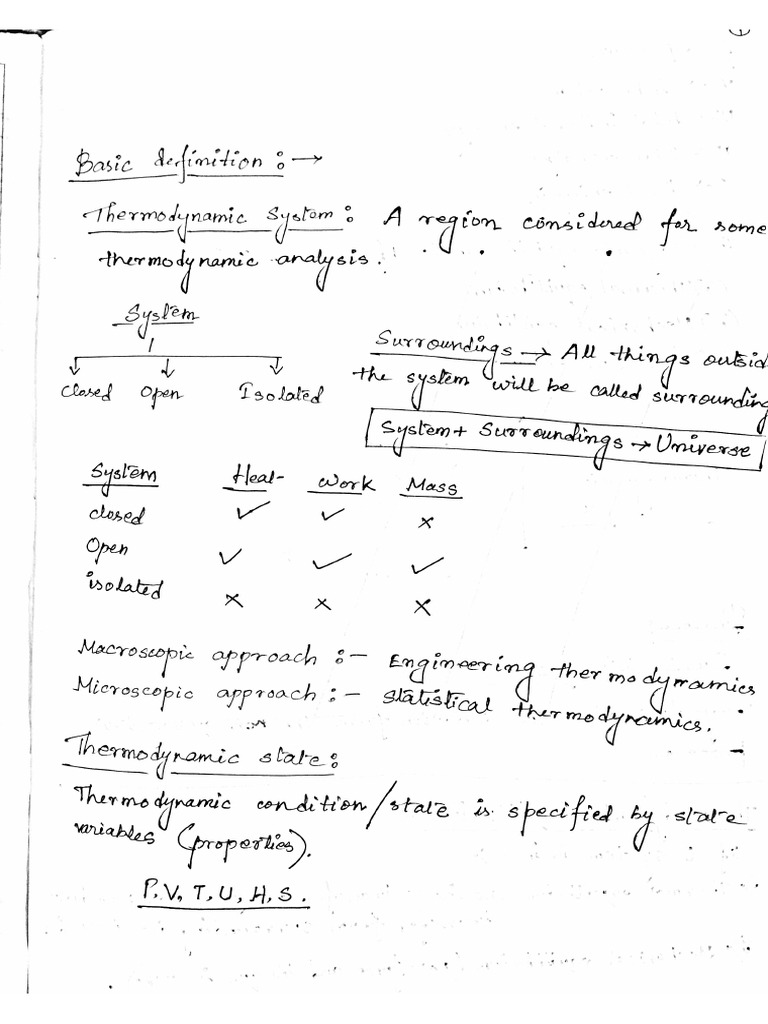 1
Basic definition :→
Thermodynamic System : A region considered for some
thermodynamic analysis.
System
Closed Open Isolated
Surroundings → All things outsid
the system will be called surrounding
System + Surroundings → Universe
System Heat Work Mass
closed ✓ ✓ ×
Open ✓ ✓ ✓
isolated × × ×
Macroscopic approach :- Engineering thermodynamics
Microscopic approach :- statistical thermodynamics.
Thermodynamic state :
Thermodynamic condition/state is specified by state
variables (properties).
P, V, T, U, H, S.